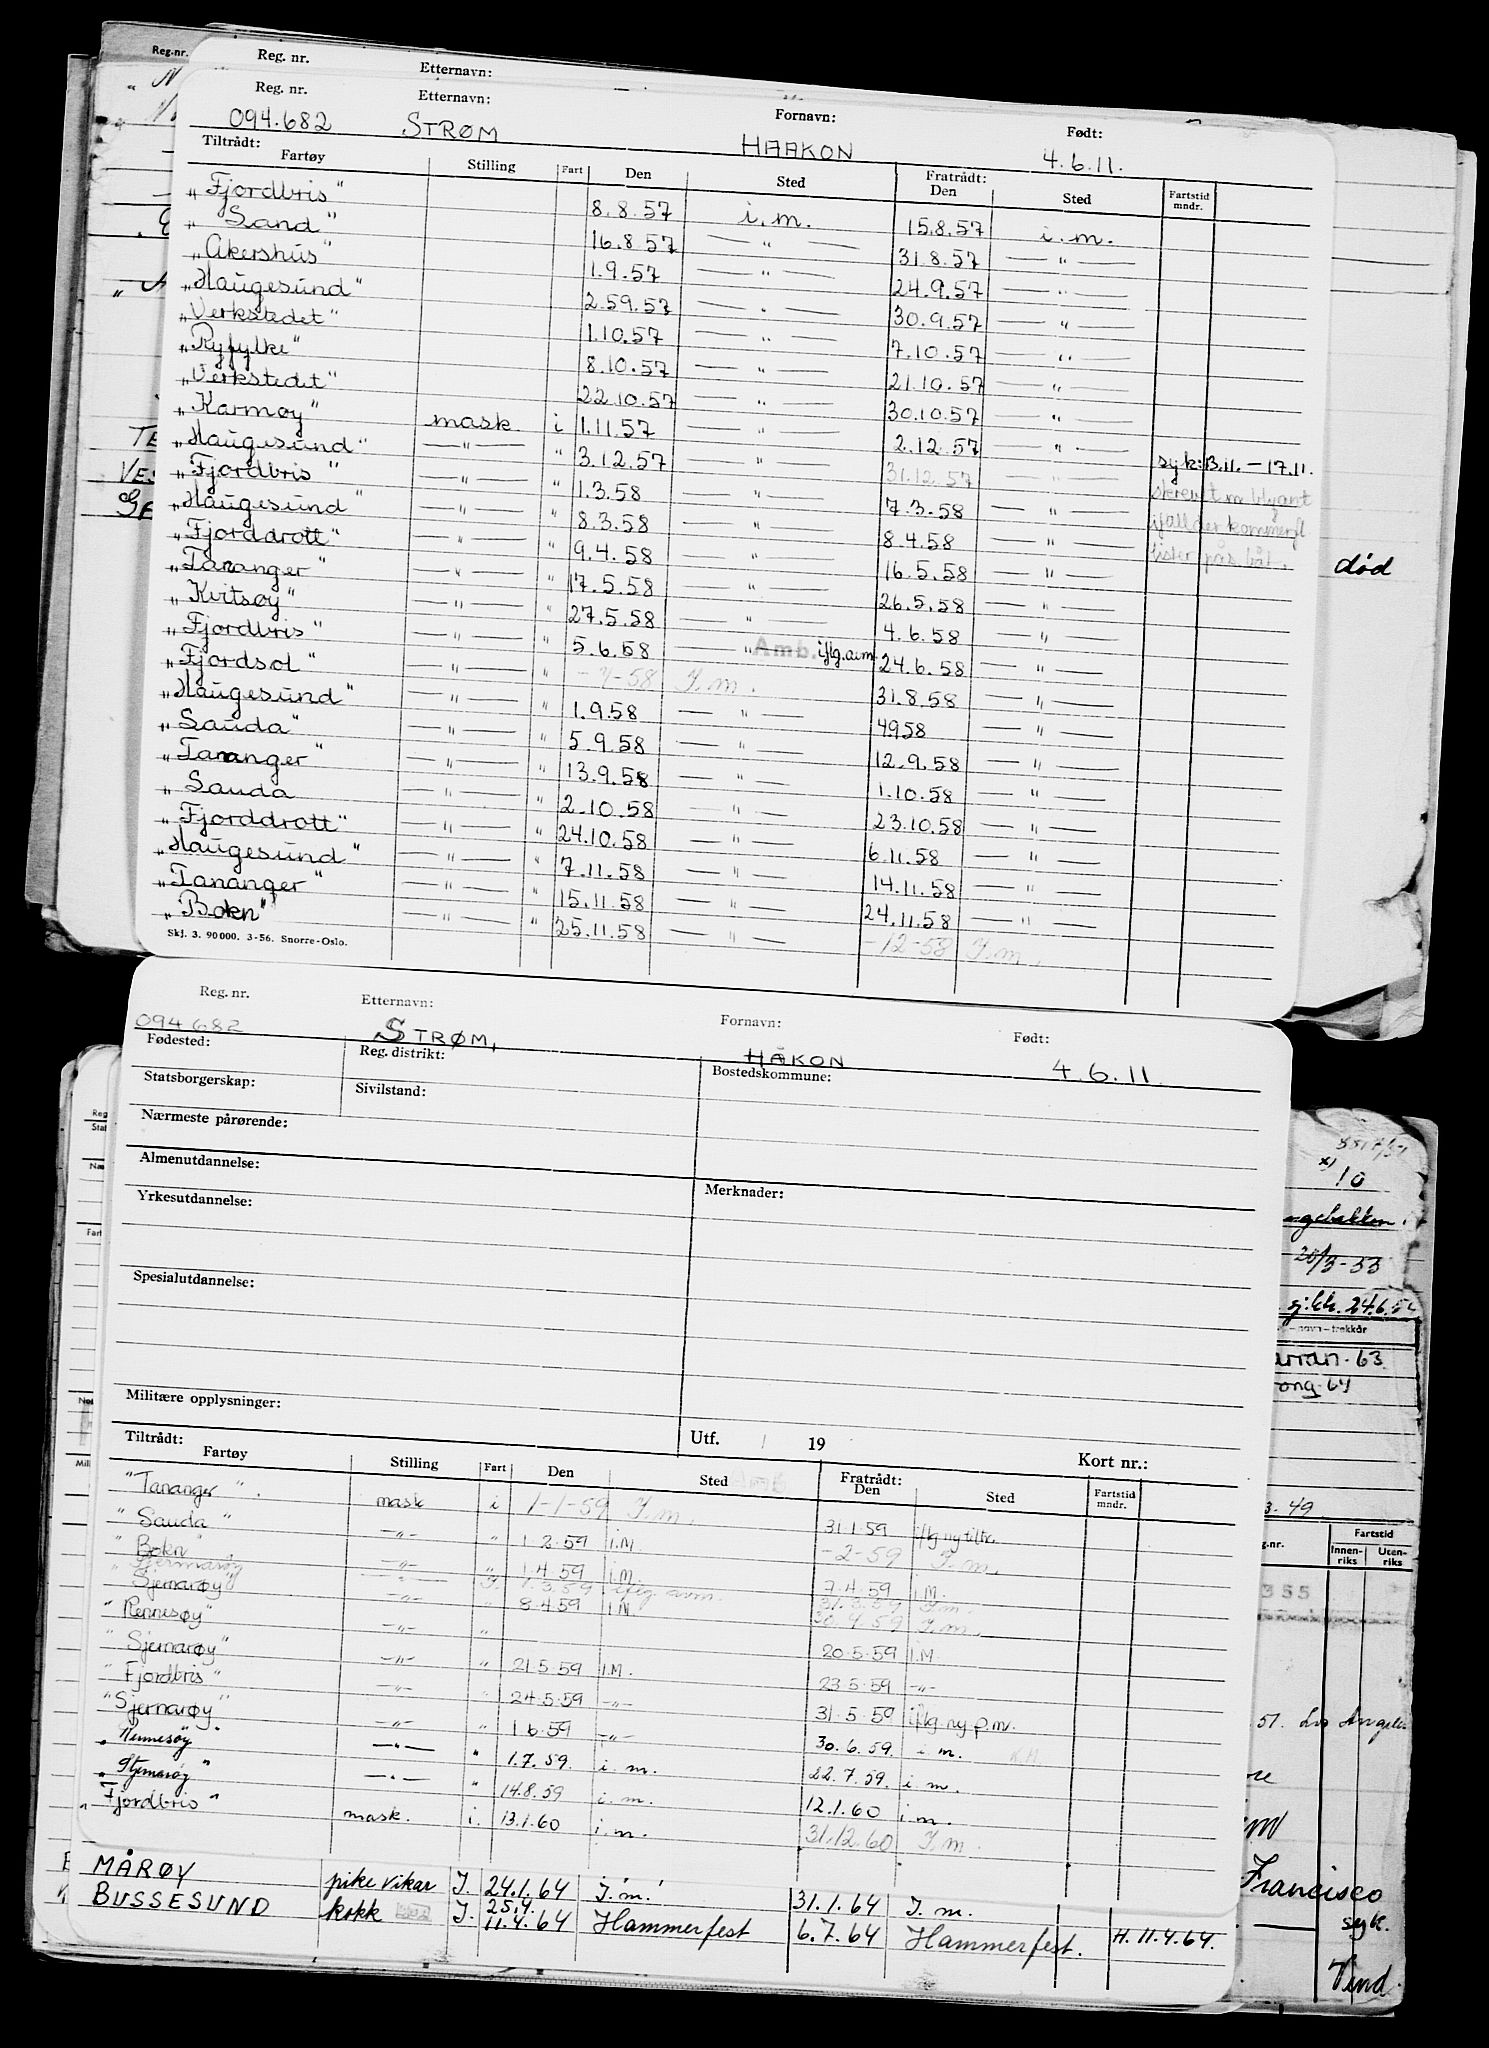 Reg.nr.
Reg. nr. Etternavn:
Reg. nr. Etternavn: Fornavn: Født:
094.682 STRØM HAAKON 4.6.11.
Tiltrådt: Fratrådt:
Fartøy Stilling Fart Den Sted Den Sted Fartstid mndr.
„Fjordbris" 8.8.57 i.m. 15.8.57 i.m.
„Sand" 16.8.57 — " — 31.8.57 — " —
„Akershus" 1.9.57 — " — 24.9.57 — " —
„Haugesund" 2.59.57 — " — 30.9.57 — " —
„Verkstedet" 1.10.57 — " — 7.10.57 — " —
„Ryfylke" 8.10.57 — " — 21.10.57 — " —
„Verkstedet" 22.10.57 — " — 30.10.57 "
„Karmøy" mask. i 1.11.57 — " — 2.12.57 " — syk: 13.11. – 17.11.
„Haugesund" — " — " 3.12.57 " 31.12.57 skrevet m blyant
„Fjordbris" — " — " 1.3.58 — " — 7.3.58 — " — ifall der kommer fl
„Haugesund" — " — " 8.3.58 " 8.4.58 — " — lister på s. båt.
„Fjorddrott" — " — " 9.4.58 " 16.5.58 — " —
„Tananger" — " — " 17.5.58 " 26.5.58 — " —
„Kvitsøy" — " — " 27.5.58 — " — 4.6.58 — " —
„Fjordbris" — " — " 5.6.58 — " Amb. iflg. avm. 24.6.58 — " —
„Fjordsol" — " — " - 7 - 58 I.m. 31.8.58 — " —
„Haugesund" — " — " 1.9.58 — " — 4958 — " —
„Sauda" — " — " 5.9.58 — " — 12.9.58 — " —
„Tananger" — " — " 13.9.58 — " — 1.10.58 — " —
„Sauda — " — " 2.10.58 — " — 23.10.58 — " —
„Fjorddrott" — " — " 24.10.58 — " — 6.11.58 — " —
„Haugesund" — " — " 7.11.58 — " — 14.11.58 — " —
„Tananger" — " — " 15.11.58 — " — 24.11.58 — " —
„Bokn" — " — " 25.11.58 — " — - 12 - 58 I.m.
Skj. 3. 90000. 3-56. Snorre-Oslo.
død
Reg. nr. Etternavn: Fornavn: Født:
094682 STRØM, HÅKON 4.6.11.
Fødested: Reg. distrikt: Bostedskommune:
Statsborgerskap: Sivilstand:
Nærmeste pårørende:
Almenutdannelse:
Yrkesutdannelse: Merknader:
Spesialutdannelse:
Militære opplysninger:
Utf. / 19 Kort nr.:
Tiltrådt: Fratrådt:
Fartøy Stilling Fart Den Sted Den Sted Fartstid mndr.
"Tananger". mask i 1-1-59 I.m. 31.1.59 iflg ny tiltr.
"Sauda" — " — " 1.2.59 i.M. - 2 - 59 I.m.
"Bokn" — " — " 1.4.59 i.M. 7.4.59 i.M.
"Sjernarøy I. 1.3.59 iflg. avm. 31.3.59 I.m.
"Sjernarøy" — " — " 8.4.59 I.M. 30.4.59 I.m.
"Rennesøy" — " — " 20.5.59 i.M.
"Sjernarøy" — " — " 21.5.59 I.M. 23.5.59 — " —
"Fjordbris" — " — " 24.5.59 — " — 31.5.59 iflg. ny p.m.
"Sjernarøy" — " — " 1.6.59 — " — 30.6.59. i m.
„Rennesøy" — " — " 1.7.59. i. m. 22.7.59. i. m.
„Stjernarøy" — " — " 14.8.59 i. m. 12.1.60 i. m.
"Fjordbris" mask. i. 13.1.60 i. m. 31.12.60 I.m.
MÅRØY pike vikar I. 24.1.64 I.m. 31.1.64 I. m.
BUSSESUND kokk I. 25.4. 11.4.64 Hammerfest 6.7.64 Hammerfest. H. 11.4.64.
10
25/3-53
sj.kk. 24.6.5
— navn — trekkår
arran-63.
ong-64
3.49
Fartstid
g.nr. Innen-riks Uten-riks
355
51. Los Angeles
Francisco
syk.
Vend